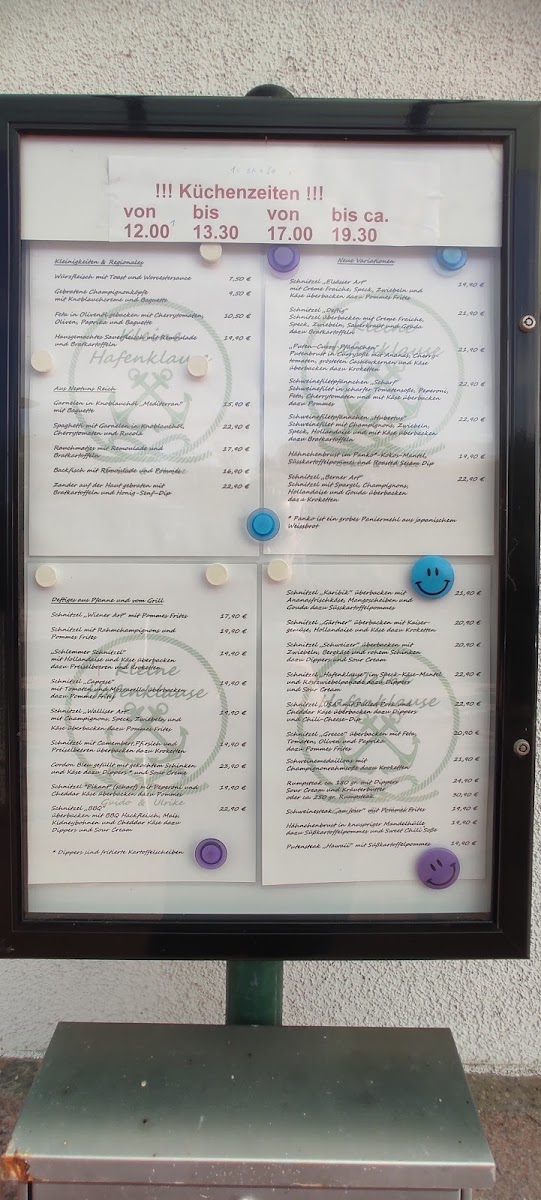 !!! Küchenzeiten !!!
von bis von bis ca.
12.00 13.30 17.00 19.30
Kleinigkeiten & Regionales
Würzfleisch mit Toast und Worcestersauce 7,50 €
Gebratene Champignonköpfe
mit Knoblauchcreme und Baguette 9,50 €
Feta in Olivenöl gebacken mit Cherrytomaten, 10,50 €
Oliven, Paprika und Baguette
Hausgemachtes Sauerfleisch mit Remoulade 19,90 €
und Bratkartoffeln
Hafenklause
Aus Neptuns Reich
Garnelen in Knoblauchöl „Mediterran" 15,90 €
mit Baguette
Spaghetti mit Garnelen in Knoblauchöl, 22,90 €
Cherrytomaten und Rucola
Rauchmatjes mit Remoulade und 17,90 €
Bratkartoffeln
Backfisch mit Remoulade und Pommes 16,90 €
Zander auf der Haut gebraten mit 22,90 €
Bratkartoffeln und Honig-Senf-Dip
Neue Variationen
Schnitzel „Elsässer Art" 19,90 €
mit Creme Fraiche, Speck, Zwiebeln und
Käse überbacken dazu Pommes Frites
Schnitzel „Deftig" 21,90 €
Schnitzel überbacken mit Creme Fraiche,
Speck, Zwiebeln, Sauerkraut und Gouda
dazu Bratkartoffeln
„Puten-Curry Pfännchen" 21,90 €
Putenbrust in Currysoße mit Ananas, Cherry-
tomaten, gerösteten Cashewkernen und Käse
überbacken dazu Kroketten
Schweinefiletpfännchen „Scharf" 22,90 €
Schweinefilet in scharfer Tomatensoße, Peperoni,
Feta, Cherrytomaten und mit Käse überbacken
dazu Pommes
Schweinefiletpfännchen „Hubertus" 22,90 €
Schweinefilet mit Champignons, Zwiebeln,
Speck, Hollandaise und mit Käse überbacken
dazu Bratkartoffeln
Hähnchenbrust im Panko*-Kokos-Mantel, 19,90 €
Süsskartoffelpommes und Roasted Sesam Dip
Schnitzel „Berner Art" 22,90 €
Schnitzel mit Spargel, Champignons,
Hollandaise und Gouda überbacken
dazu Kroketten
* Panko ist ein grobes Paniermehl aus japanischem
Weissbrot
Deftiges aus Pfanne und vom Grill
Schnitzel „Wiener Art" mit Pommes Frites 17,90 €
Schnitzel mit Rahmchampignons und 19,90 €
Pommes Frites
„Schlemmer Schnitzel" 19,90 €
mit Hollandaise und Käse überbacken
dazu Preiselbeeren und Kroketten
Schnitzel „Caprese" 19,90 €
mit Tomaten und Mozzarella überbacken
dazu Pommes Frites
Schnitzel „Walliser Art" 19,90 €
mit Champignons, Speck, Zwiebeln und
Käse überbacken dazu Pommes Frites
Schnitzel mit Camembert, Pfirsich und 19,90 €
Preiselbeeren überbacken dazu Kroketten
Cordon Bleu gefüllt mit gekochtem Schinken 23,90 €
und Käse dazu Dippers * und Sour Creme
Schnitzel "Pikant" (scharf) mit Peperoni und 19,90 €
Cheddar Käse überbacken dazu Pommes
Schnitzel „BBQ" 22,90 €
überbacken mit BBQ Hackfleisch, Mais,
Kidneybohnen und Cheddar Käse dazu
Dippers und Sour Cream
* Dippers sind fritierte Kartoffelscheiben
Kleine
Hafenklause
Guido & Ulrike
Schnitzel „Karibik" überbacken mit 21,90 €
Ananasfrischkäse, Mangoscheiben und
Gouda dazu Süsskartoffelpommes
Schnitzel „Gärtner" überbacken mit Kaiser- 20,90 €
gemüse, Hollandaise und Käse dazu Kroketten
Schnitzel „Schweizer" überbacken mit 20,90 €
Zwiebeln, Bergkäse und rohem Schinken
dazu Dippers und Sour Cream
Schnitzel „Hafenklause" im Speck-Käse-Mantel 22,90 €
und Rotzwiebelpofond dazu Dippers
und Sour Cream
Schnitzel mit Pulled Pork und 22,90 €
Cheddar Käse überbacken dazu Dippers
und Chili-Cheese-Dip
Schnitzel „Greece" überbacken mit Feta, 20,90 €
Tomaten, Oliven und Paprika
dazu Pommes Frites
Schweinemedaillons mit 21,90 €
Champignonrahmsoße dazu Kroketten
Rumpsteak ca. 180 gr. mit Dippers 24,90 €
Sour Cream und Kräuterbutter
oder ca 250 gr. Rumpsteak 30,90 €
Schweinesteak „Gourmet" mit Pommes Frites 19,90 €
Hähnchenbrust in knuspriger Mandelhülle 19,90 €
dazu Süßkartoffelpommes und Sweet Chili Soße
Putensteak „Hawaii" mit Süßkartoffelpommes 19,90 €
Hafenklause